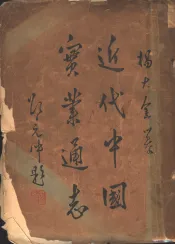 楊大金
近代中國
實業通志
邵元冲題